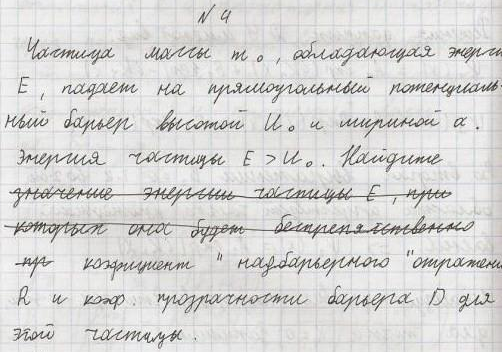 N 4
Частица массы m₀, обладающая энерги
E, падает на прямоугольный потенциаль-
ный барьер высотой U₀ и шириной a.
Энергия частицы E > U₀. Найдите
значение энергии частицы E, при
которых она будет беспрепятственно
пр коэфициент "надбарьерного" отражени
R и коэф. прозрачности барьера D для
этой частицы.